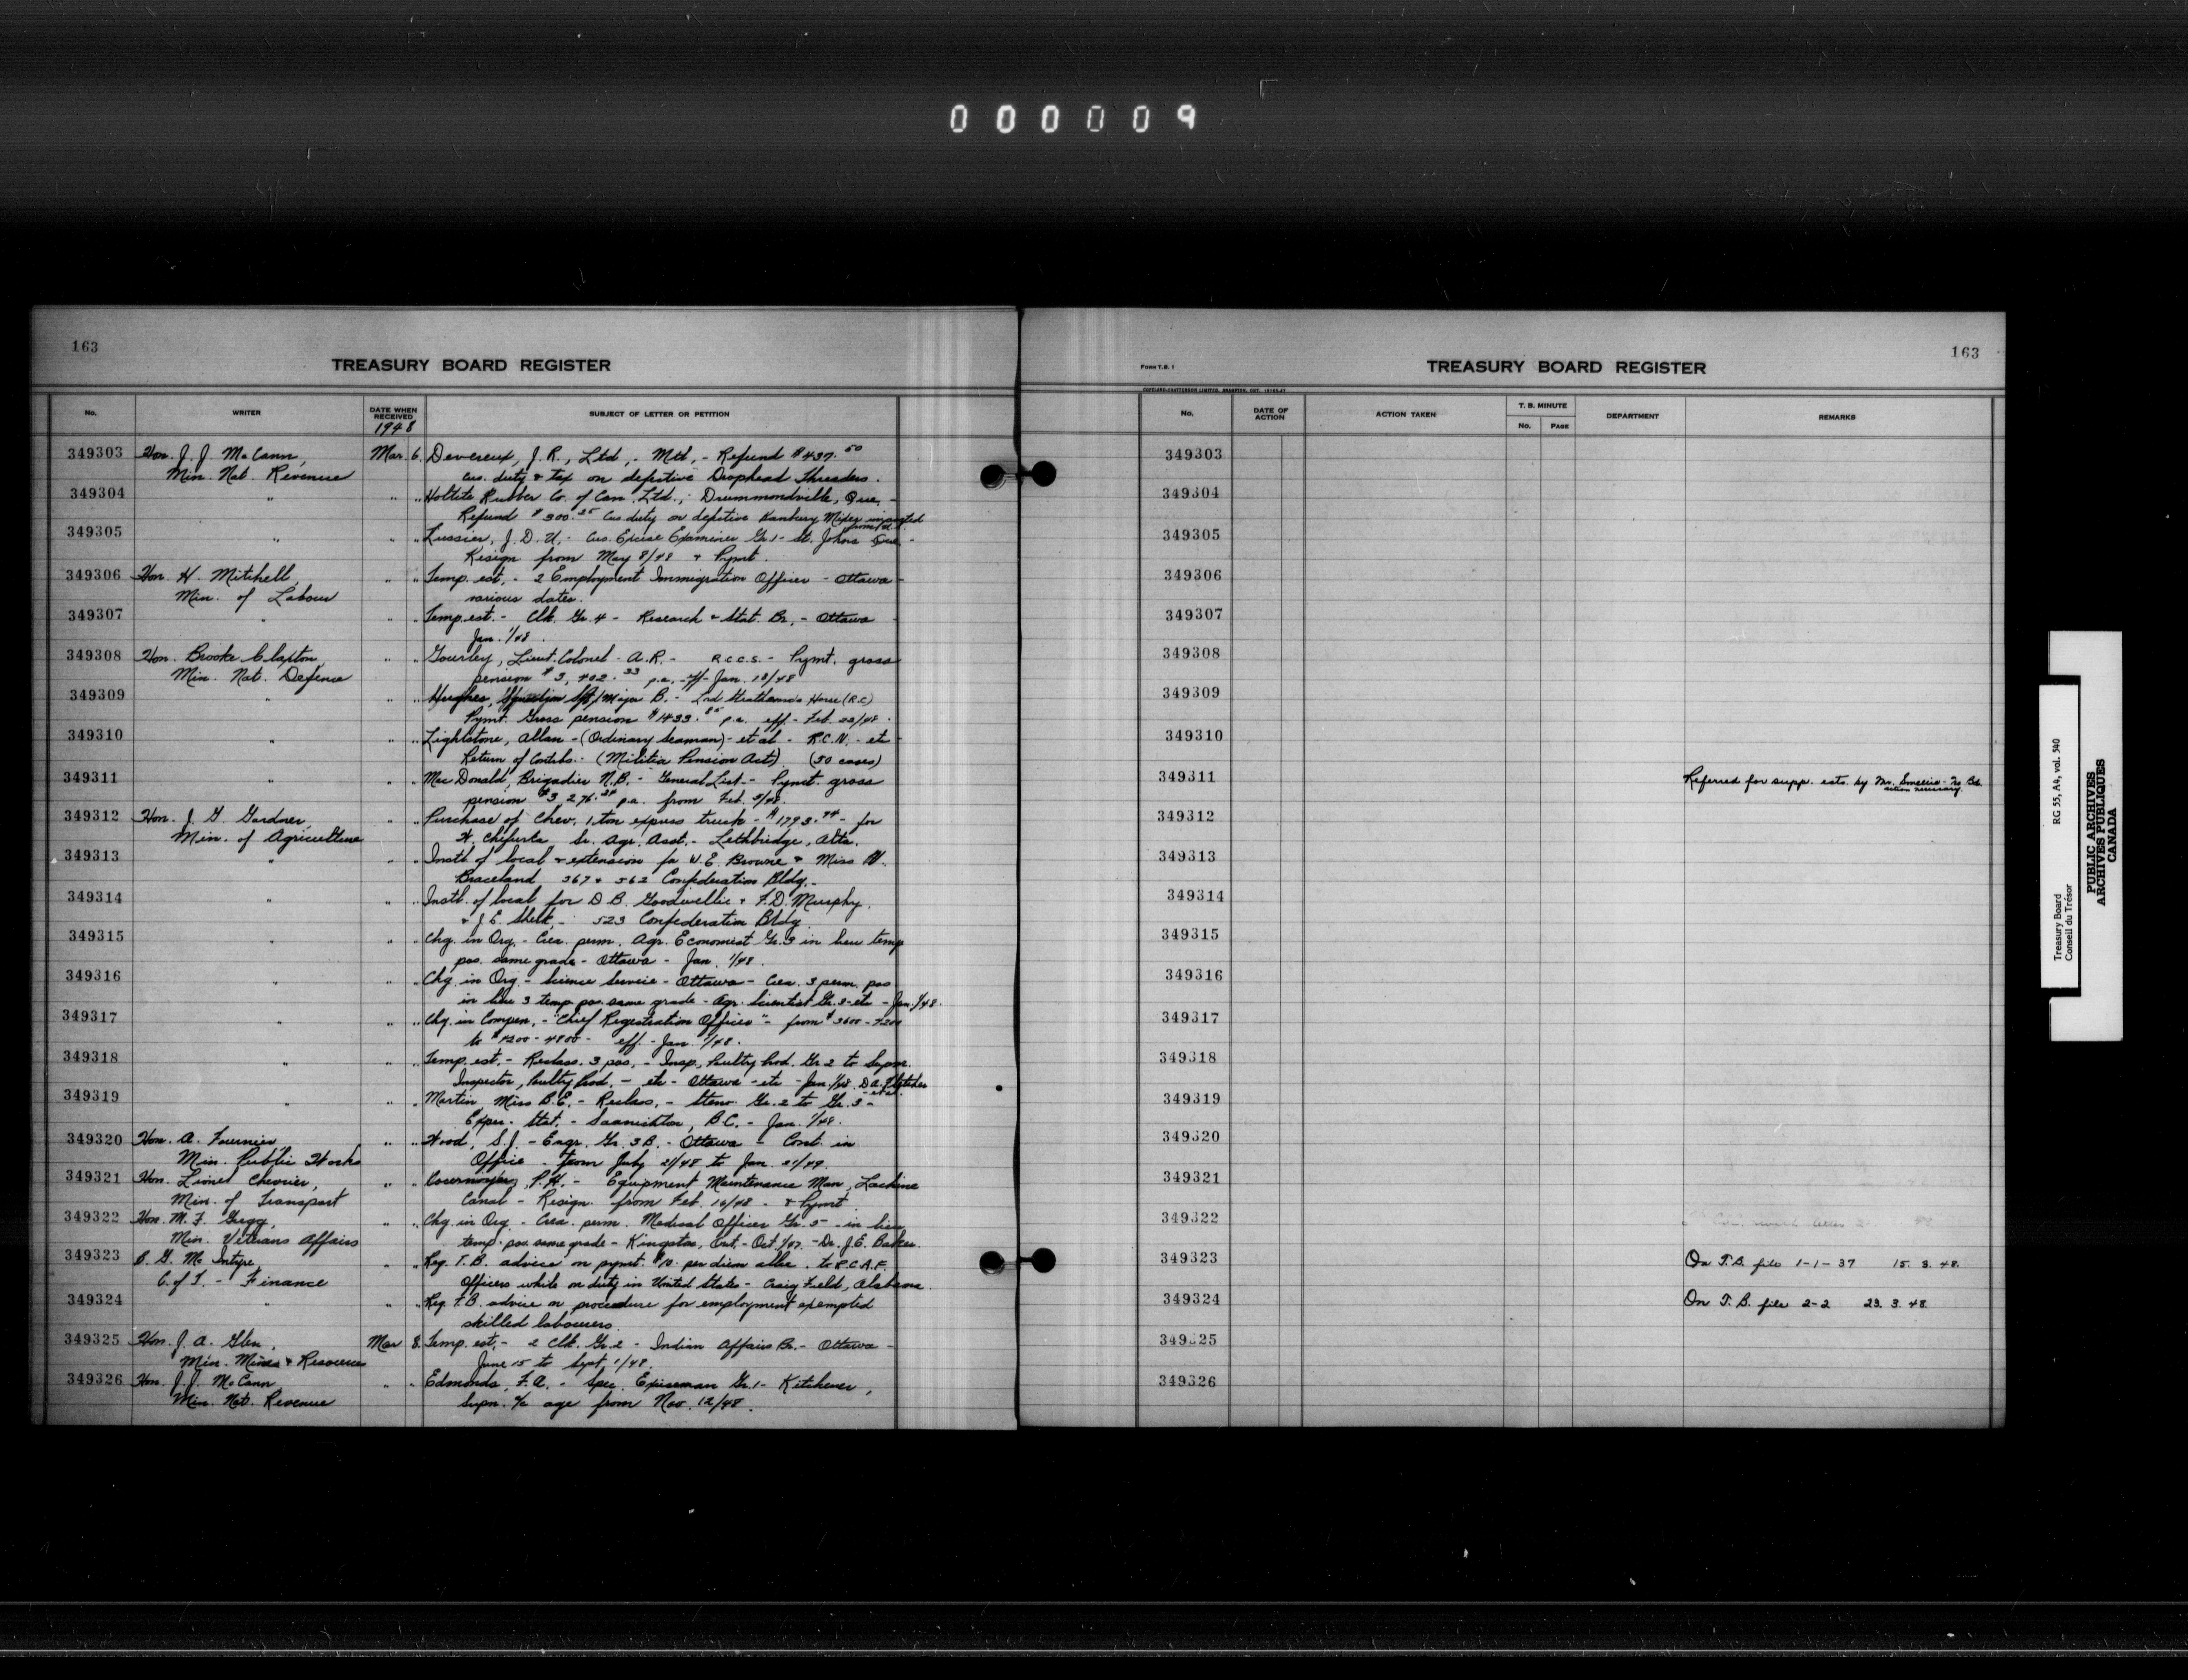 000009
163
TREASURY BOARD REGISTER
No. WRITER DATE WHEN RECEIVED SUBJECT OF LETTER OR PETITION
1948
349303 Hon. J. J. McCann, Mar. 6. Devereux, J. R., Ltd., - Mtl, - Refund $437.50
Min. Nat. Revenue Cus. duty & tax on defective Drophead Threaders.
349304 " " " Holtite Rubber Co. of Can. Ltd., - Drummondville, Que, -
Refund $300.25 Cus duty on defective Banbury Mixer imported
349305 " " " Lussier, J. D. U. - Cus. Excise Examiner Gr. 1 - St. Johns Que -
Resign from May 8/48 & Pymt.
349306 Hon. H. Mitchell, " " Temp. est. - 2 Employment Immigration Officer - Ottawa -
Min. of Labour various dates.
349307 " " " Temp. est. - Clk. Gr. 4 - Research & Stat. Br. - Ottawa
Jan. 1/48.
349308 Hon. Brooke Claxton, " " Gourley, Lieut. Colonel A.R. - R.C.C.S. - Pymt. gross
Min. Nat. Defence pension $3,402.33 p.a. - eff - Jan. 18/48
349309 " " " Hughes, Squadron Major B. - Lord Strathcona's Horse (R.C.)
Pymt. Gross pension $1433.85 p.a. eff. - Feb. 23/48.
349310 " " " Lightstone, Allan - (Ordinary Seaman) - et al - R.C.N. - etc -
Return of Contribs. - (Militia Pension Act) (50 cases)
349311 " " " MacDonald, Brigadier N.B. - General List - Pymt. gross
pension $3,276.24 p.a. from Feb. 5/48.
349312 Hon. J. G. Gardner, " " Purchase of Chev. 1 ton express truck - $1793.94 - for
Min. of Agriculture W. Chefurka Sr. Agr. Asst. - Lethbridge, Alta.
349313 " " " Instl. of local & extension for W. E. Browne & Miss W.
Braceland 367 & 562 Confederation Bldg. -
349314 " " " Instl. of local for D. B. Goodwillie & F. D. Murphy
& J. E. Shelk - 523 Confederation Bldg
349315 " " " Chg. in Org. - Crea. perm. Agr. Economist Gr. 3 in lieu temp
pos. same grade - Ottawa - Jan. 1/48.
349316 " " " Chg. in Org. - Science Service - Ottawa - Crea. 3 perm. pos
in lieu 3 temp. pos. same grade - Agr. Scientist Gr. 3 - etc - Jan. 1/48.
349317 " " " Chg. in Compen. - "Chief Registration Officer" - from $3600 - 4200
to $4200 - 4800 - eff. - Jan. 1/48.
349318 " " " Temp. est. - Reclass. 3 pos. - Insp. Poultry Prod. Gr. 2 to Superv.
Inspector, Poultry Prod. - etc - Ottawa - etc - Jan. 1/48. D. A. Fletcher
et al.
349319 " " " Martin, Miss B. E. - Reclass. - Steno. Gr. 2 to Gr. 3 -
Exper. Stat. - Saanichton, B.C. - Jan. 1/48.
349320 Hon. A. Fournier, " " Wood, S. J. - Engr. Gr. 3B. - Ottawa - Cont. in
Min. Public Works Office from July 21/48 to Jan. 21/49.
349321 Hon. Lionel Chevrier, " " P. H. - Equipment Maintenance Man, Lachine
Min. of Transport Canal - Resign. from Feb. 16/48 - & Pymt.
349322 Hon. M. F. Gregg, " " Chg. in Org. - Crea. perm. Medical Officer Gr. 5 - in lieu
Min. Veterans Affairs temp. pos. same grade - Kingston, Ont. - Oct. 1/47. - Dr. J. E. Barker.
349323 B. G. McIntyre, " " Req. T. B. advice on pymt. $10. per diem allce. to R.C.A.F.
C. of T. - Finance Officers while on duty in United States - Craig Field, Alabama.
349324 " " " Req. T.B. advice on procedure for employment exempted
skilled labourers.
349325 Hon. J. A. Glen, Mar 8. Temp. est. - 2 Clk. Gr. 2 - Indian Affairs Br. - Ottawa -
Min. Mines & Resources June 15 to Sept. 1/48.
349326 Hon. J. J. McCann " " Edmonds, F. A. - Spec. Exciseman Gr. 1 - Kitchener,
Min. Nat. Revenue Supn. a/c age from Nov. 12/48.
163
FORM T.B. 1
TREASURY BOARD REGISTER
No. DATE OF ACTION ACTION TAKEN T. B. MINUTE No. PAGE DEPARTMENT REMARKS
349303
349304
349305
349306
349307
349308
349309
349310
349311 Referred for supp. ests. by Mr.
action necessary
349312
349313
349314
349315
349316
349317
349318
349319
349320
349321
349322
349323 On T.B. file 1-1-37 15. 3. 48.
349324 On T.B. file 2-2 23. 3. 48
349325
349326
Treasury Board RG 55, A4, vol. 540
Conseil du Trésor
PUBLIC ARCHIVES
ARCHIVES PUBLIQUES
CANADA